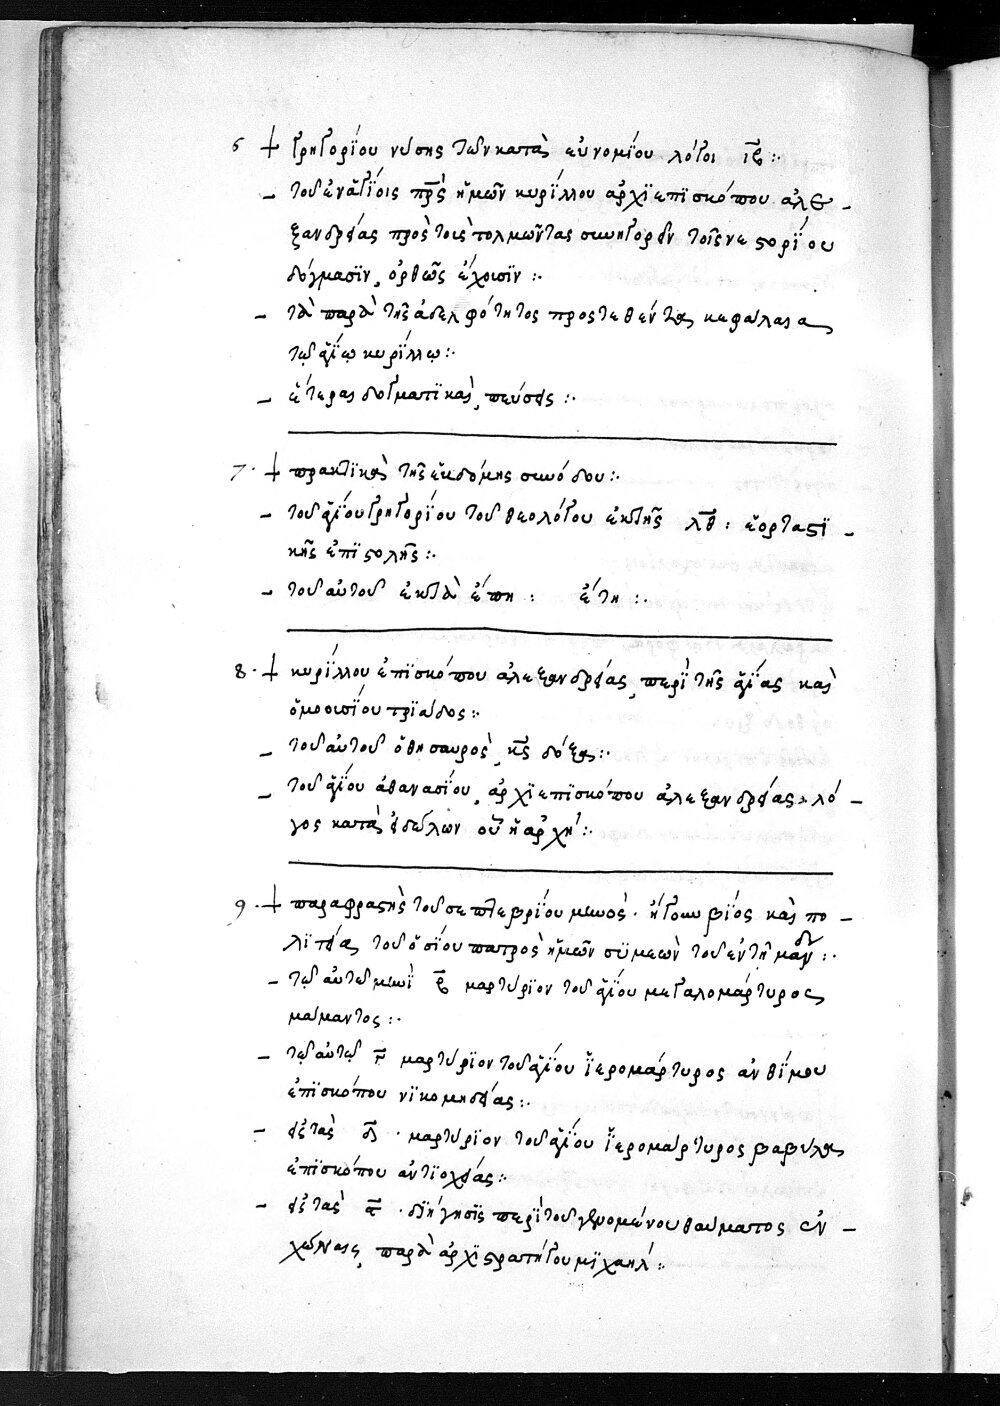 6 + γρηγορίου νύσης τῶν κατὰ εὐνομίου λόγοι ιβ:·
– τοῦ ἐν ἁγίοις πρς ἡμῶν κυρίλλου ἀρχϊεπϊσκόπου ἀλε –
ξανδρείας πρὸς τοὺς τολμῶντας συνηγορεῖν τοῖς νεστορίου
δόγμασϊν, ὀρθῶς ἔχουσϊν:·
– τὰ παρὰ τῆς ἀδελφότητος προστεθέντα κεφάλαια
τῷ ἁγίῳ κυρίλλῳ:·
– ἑτέρας δογματϊκὰς, πεύσεις:·
7· + πρακτϊκὰ τῆς ἑβδόμης συνόδου:·
– τοῦ ἁγίου γρηγορίου τοῦ θεολόγου ἐκ τῆς λθ: ἑορταστϊ –
κῆς ἐπϊστολῆς:·
– τοῦ αὐτοῦ ἐκ τὰ ἔπη: ἔτη:·
8· + κυρίλλου ἐπϊσκόπου ἀλεξανδρείας, περὶ τῆς ἁγίας καὶ
ὁμοουσίου τρϊάδος:·
– τοῦ αὐτοῦ ὁ θησαυρὸς, κς δόξα:·
– τοῦ ἁγίου ἀθανασίου, ἀρχϊεπϊσκόπου ἀλεξανδρείας, λό –
γος κατὰ εἰδώλων οὗ ἡ ἀρχή:·
9· + παραφραστὴς τοῦ σεπτεβρίου μηνὸς· ἤγουν βϊος καὶ πο –
λϊτεία τοῦ ὁσίου πατρὸς ἡμῶν συμεὼν τοῦ ἐν τῇ μάνδρ:·
– τῷ αὐτῷ μηνὶ β μαρτύρϊον τοῦ ἁγίου μεγαλομάρτυρος
μάμαντος:·
– τῷ αὐτῷ γ μαρτύρϊον τοῦ ἁγίου ἱερομάρτυρος ἀνθίμου
ἐπϊσκόπου νϊκομηδείας:·
– εἰς τὰς δ· μαρτύρϊον τοῦ ἁγίου ἱερομάρτυρος βαβύλα
ἐπϊσκόπου ἀντϊοχείας:·
– εἰς τὰς ϛ· δϊήγησϊς περὶ τοῦ γενομένου θαύματος ἐν –
χώναις, παρὰ ἀρχϊστρατήγου μϊχαηλ:·